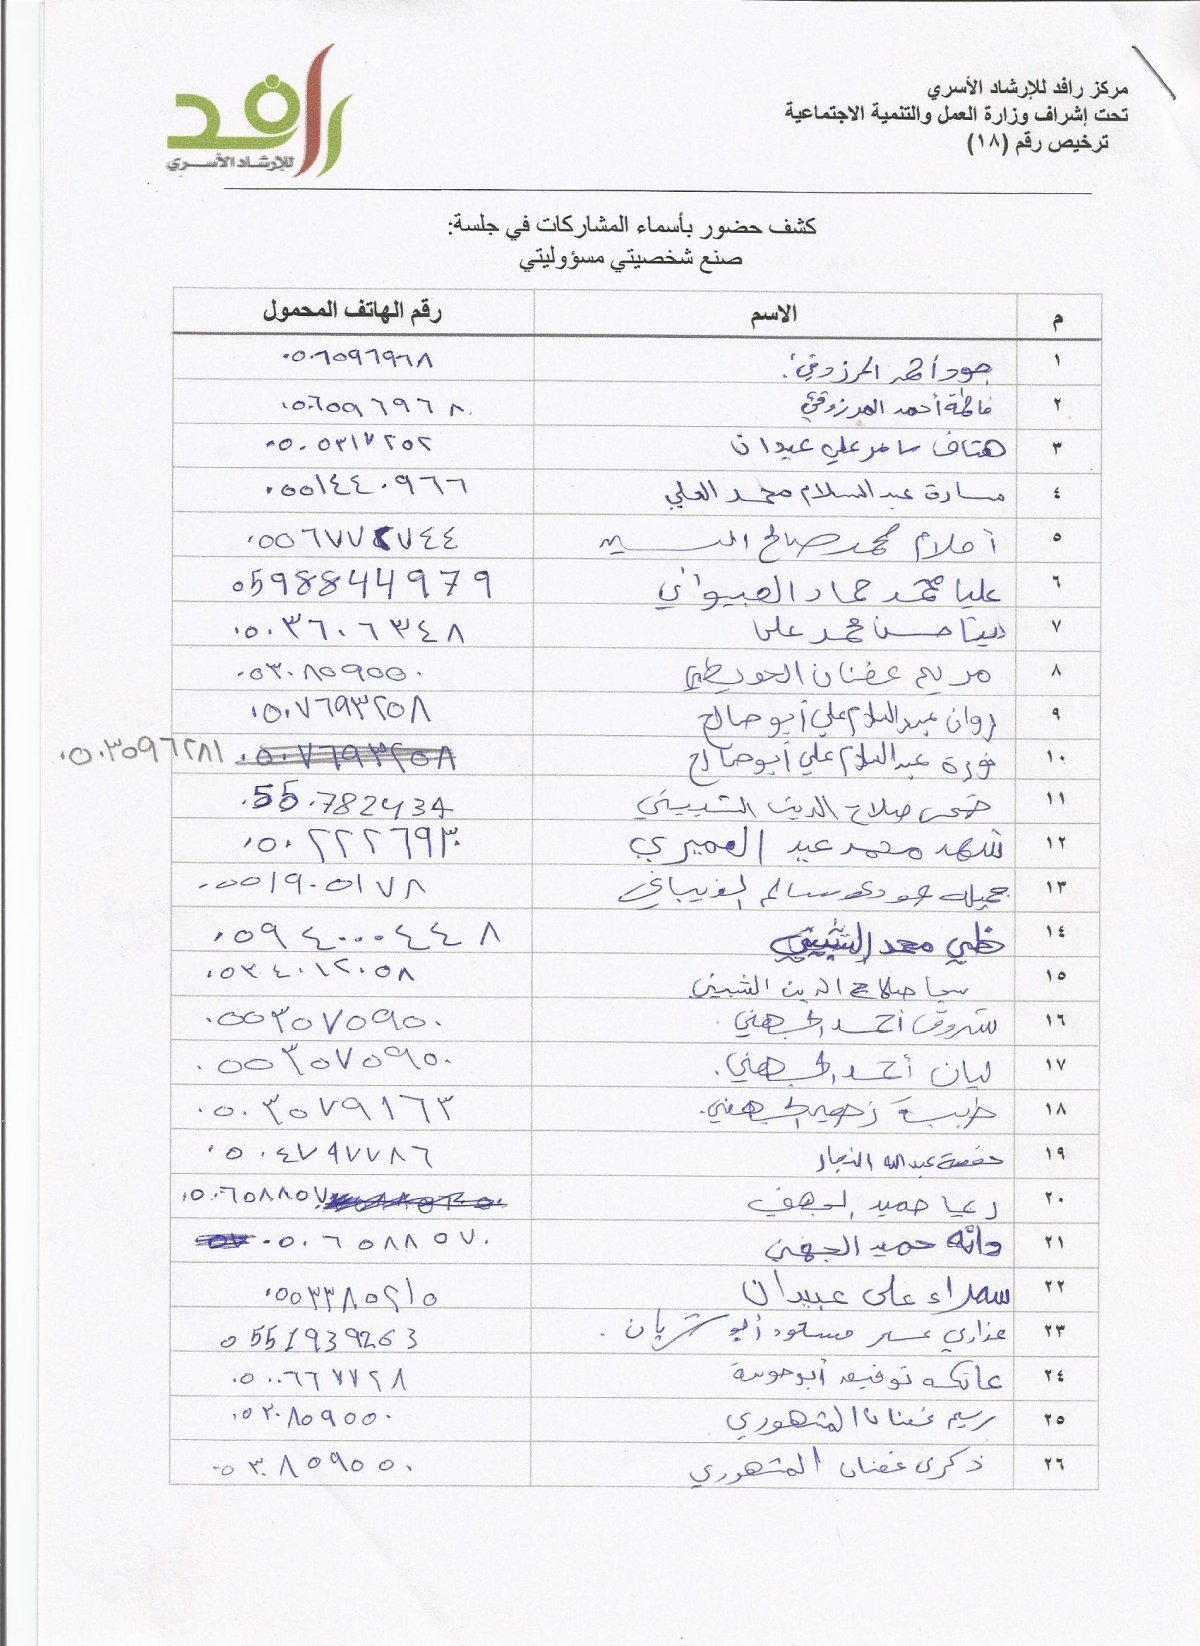 رافد
للإرشاد الأسري
مركز رافد للإرشاد الأسري
تحت إشراف وزارة العمل والتنمية الاجتماعية
ترخيص رقم (١٨)
كشف حضور بأسماء المشاركات في جلسة:
صنع شخصيتي مسؤوليتي
م الاسم رقم الهاتف المحمول
١ جود أحمد المرزوقي ٠٥٠٦٥٩٦٩٦٨
٢ فاطمة أحمد المرزوقي ٠٥٠٦٥٩٦٩٦٨
٣ هتاف سامر علي عبيدان ٠٥٠٥٣١٧٢٥٢
٤ سارة عبدالسلام محمد العلي ٠٥٥١٤٤٠٩٦٦
٥ أحلام محمد صالح السيد ٠٥٥٦٧٧٢٧٤٤
٦ عليا محمد حماد 0598844979
٧ حسن محمد علي ٠٥٠٣٦٠٦٣٤٨
٨ مريم عفنان ٠٥٣٠٨٥٩٥٥٠
٩ روان عبدالسلام علي أبو صالح ٠٥٠٧٦٩٣٢٥٨
١٠ فوزة عبدالسلام علي أبو صالح ٠٥٠٣٥٩٦٢٨١
١١ ضحى صلاح الدين الشبيني 0550782434
١٢ شهد محمد عيد العميري ٠٥٠٢٢٢٦٩٣٠
١٣ جميله سالم ٠٥٥١٩٠٥١٧٨
١٤ محمد الشبيني ٠٥٩٤٠٠٠٤٤٨
١٥ سجا صلاح الدين الشبيني ٠٥٣٤٠١٢٠٥٨
١٦ شروق أحمد الجهني ٠٥٥٣٥٧٥٩٥٠
١٧ ليان أحمد الجهني ٠٥٥٣٥٧٥٩٥٠
١٨ الجهني ٠٥٠٣٥٧٩١٦٣
١٩ حفصة عبدالله النجار ٠٥٠٤٧٩٧٧٨٦
٢٠ حميد الجهني ٠٥٠٦٥٨٨٥٧٠
٢١ دانه حميد الجهني ٠٥٠٦٥٨٨٥٧٠
٢٢ سمراء علي عبيدان ٠٥٥٣٣٨٥٢١٥
٢٣ عذاري مسعود أبو شريان 0551939263
٢٤ عاتكه توفيق ٠٥٠٠٦٦٧٧٢٨
٢٥ ريم عفنان المشهوري ٠٥٣٠٨٥٩٥٥٠
٢٦ ذكرى عفنان المشهوري ٠٥٣٠٨٥٩٥٥٠